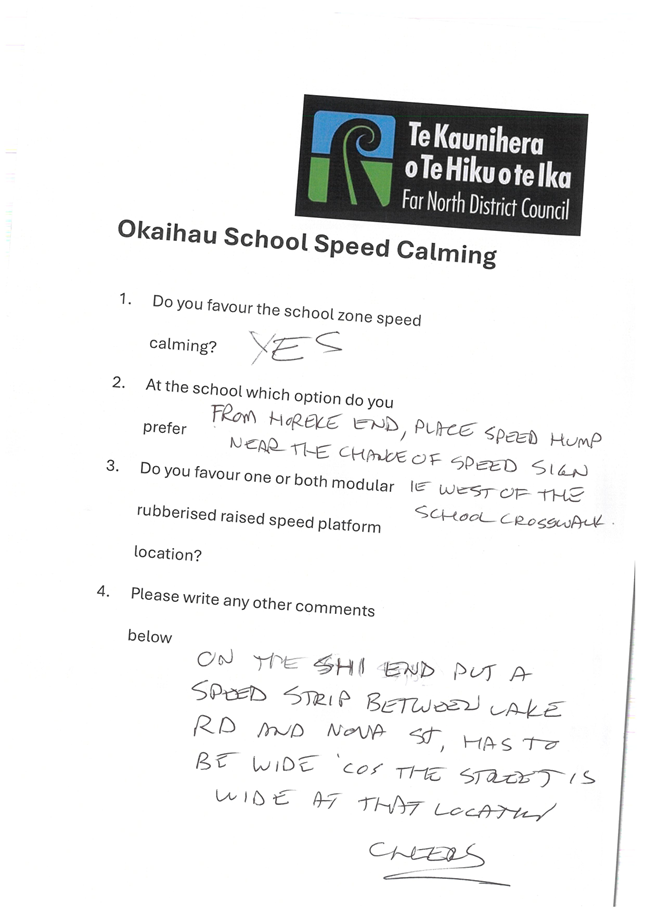 Te Kaunihera
o Te Hiku o te Ika
Far North District Council
Okaihau School Speed Calming
1. Do you favour the school zone speed
calming? YES
2. At the school which option do you
prefer FROM HOREKE END, PLACE SPEED HUMP
NEAR THE CHANGE OF SPEED SIGN
3. Do you favour one or both modular IE WEST OF THE
rubberised raised speed platform SCHOOL CROSSWALK.
location?
4. Please write any other comments
below
ON THE SH1 END PUT A
SPEED STRIP BETWEEN LAKE
RD AND NOVA ST, HAS TO
BE WIDE 'COS THE STREET IS
WIDE AT THAT LOCATION
CHEERS